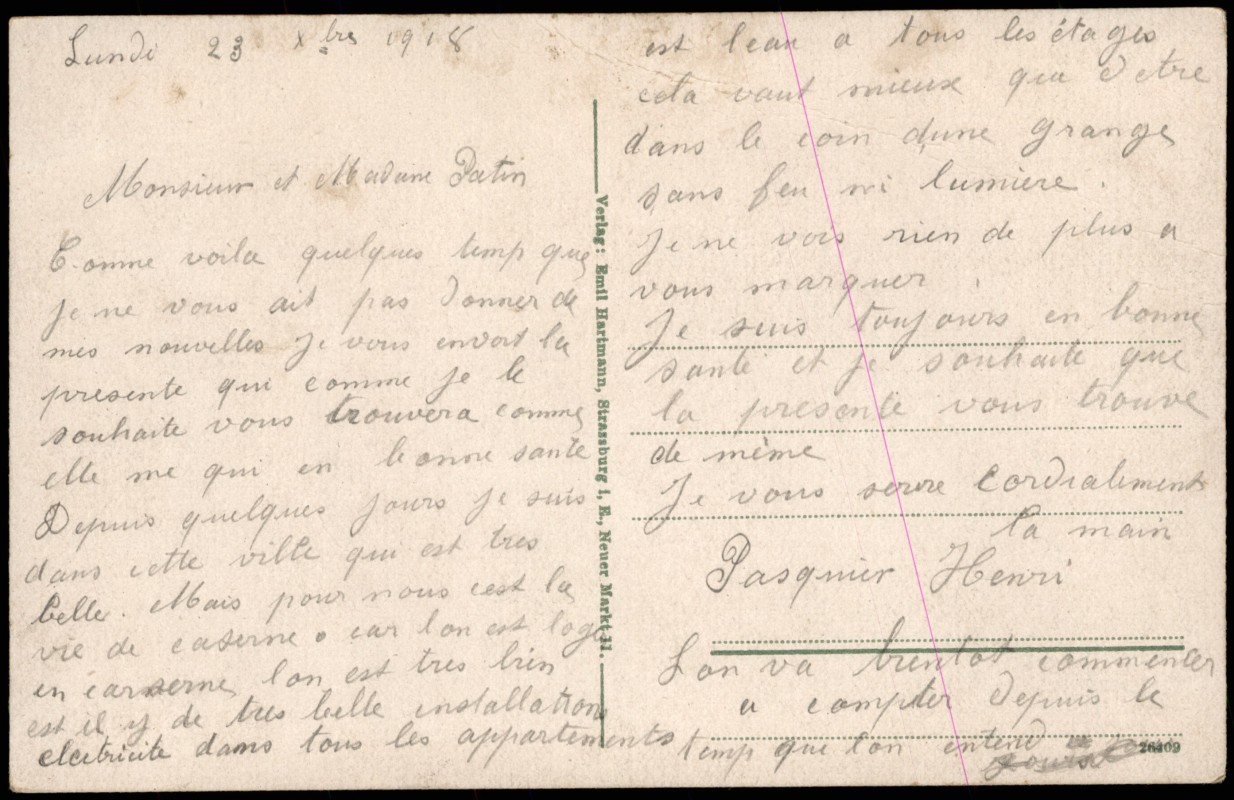 Lundi 23 Xbre 1918
Monsieur et Madame Patin
Comme voila quelques temp que
je ne vous ait pas donner de
mes nouvelles Je vous envoit la
presente qui comme je le
souhaite vous trouvera comme
elle me qui en bonne sante
Depuis quelques jours je suis
dans cette ville qui est tres
belle. Mais pour nous cest la
vie de caserne. car lon est loge
en carserne, lon est tres bien
est il y de tres belle installation
electricite dans tous les appartements
est leau a tous les étages
cela vaut mieux que detre
dans le coin dune grange
sans feu ni lumiere.
Je ne vois rien de plus a
vous marquer.
Je suis toujours en bonne
sante et je souhaite que
la presente vous trouve
de même
Je vous serre cordialement
la main
Pasquier Henri
Lon va bientot commencer
a compter depuis le
temp que lon entend
Verlag: Emil Hartmann, Strassburg i. E., Neuer Markt 11.